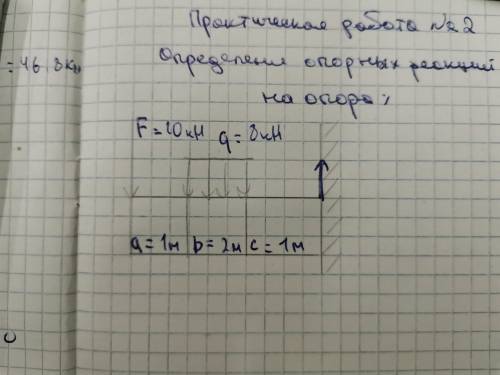 Практическая работа №2
= 46,8кн
Определения опорных реакций
на опора:
F = 10кН q = 8кН
a = 1м b = 2м c = 1м